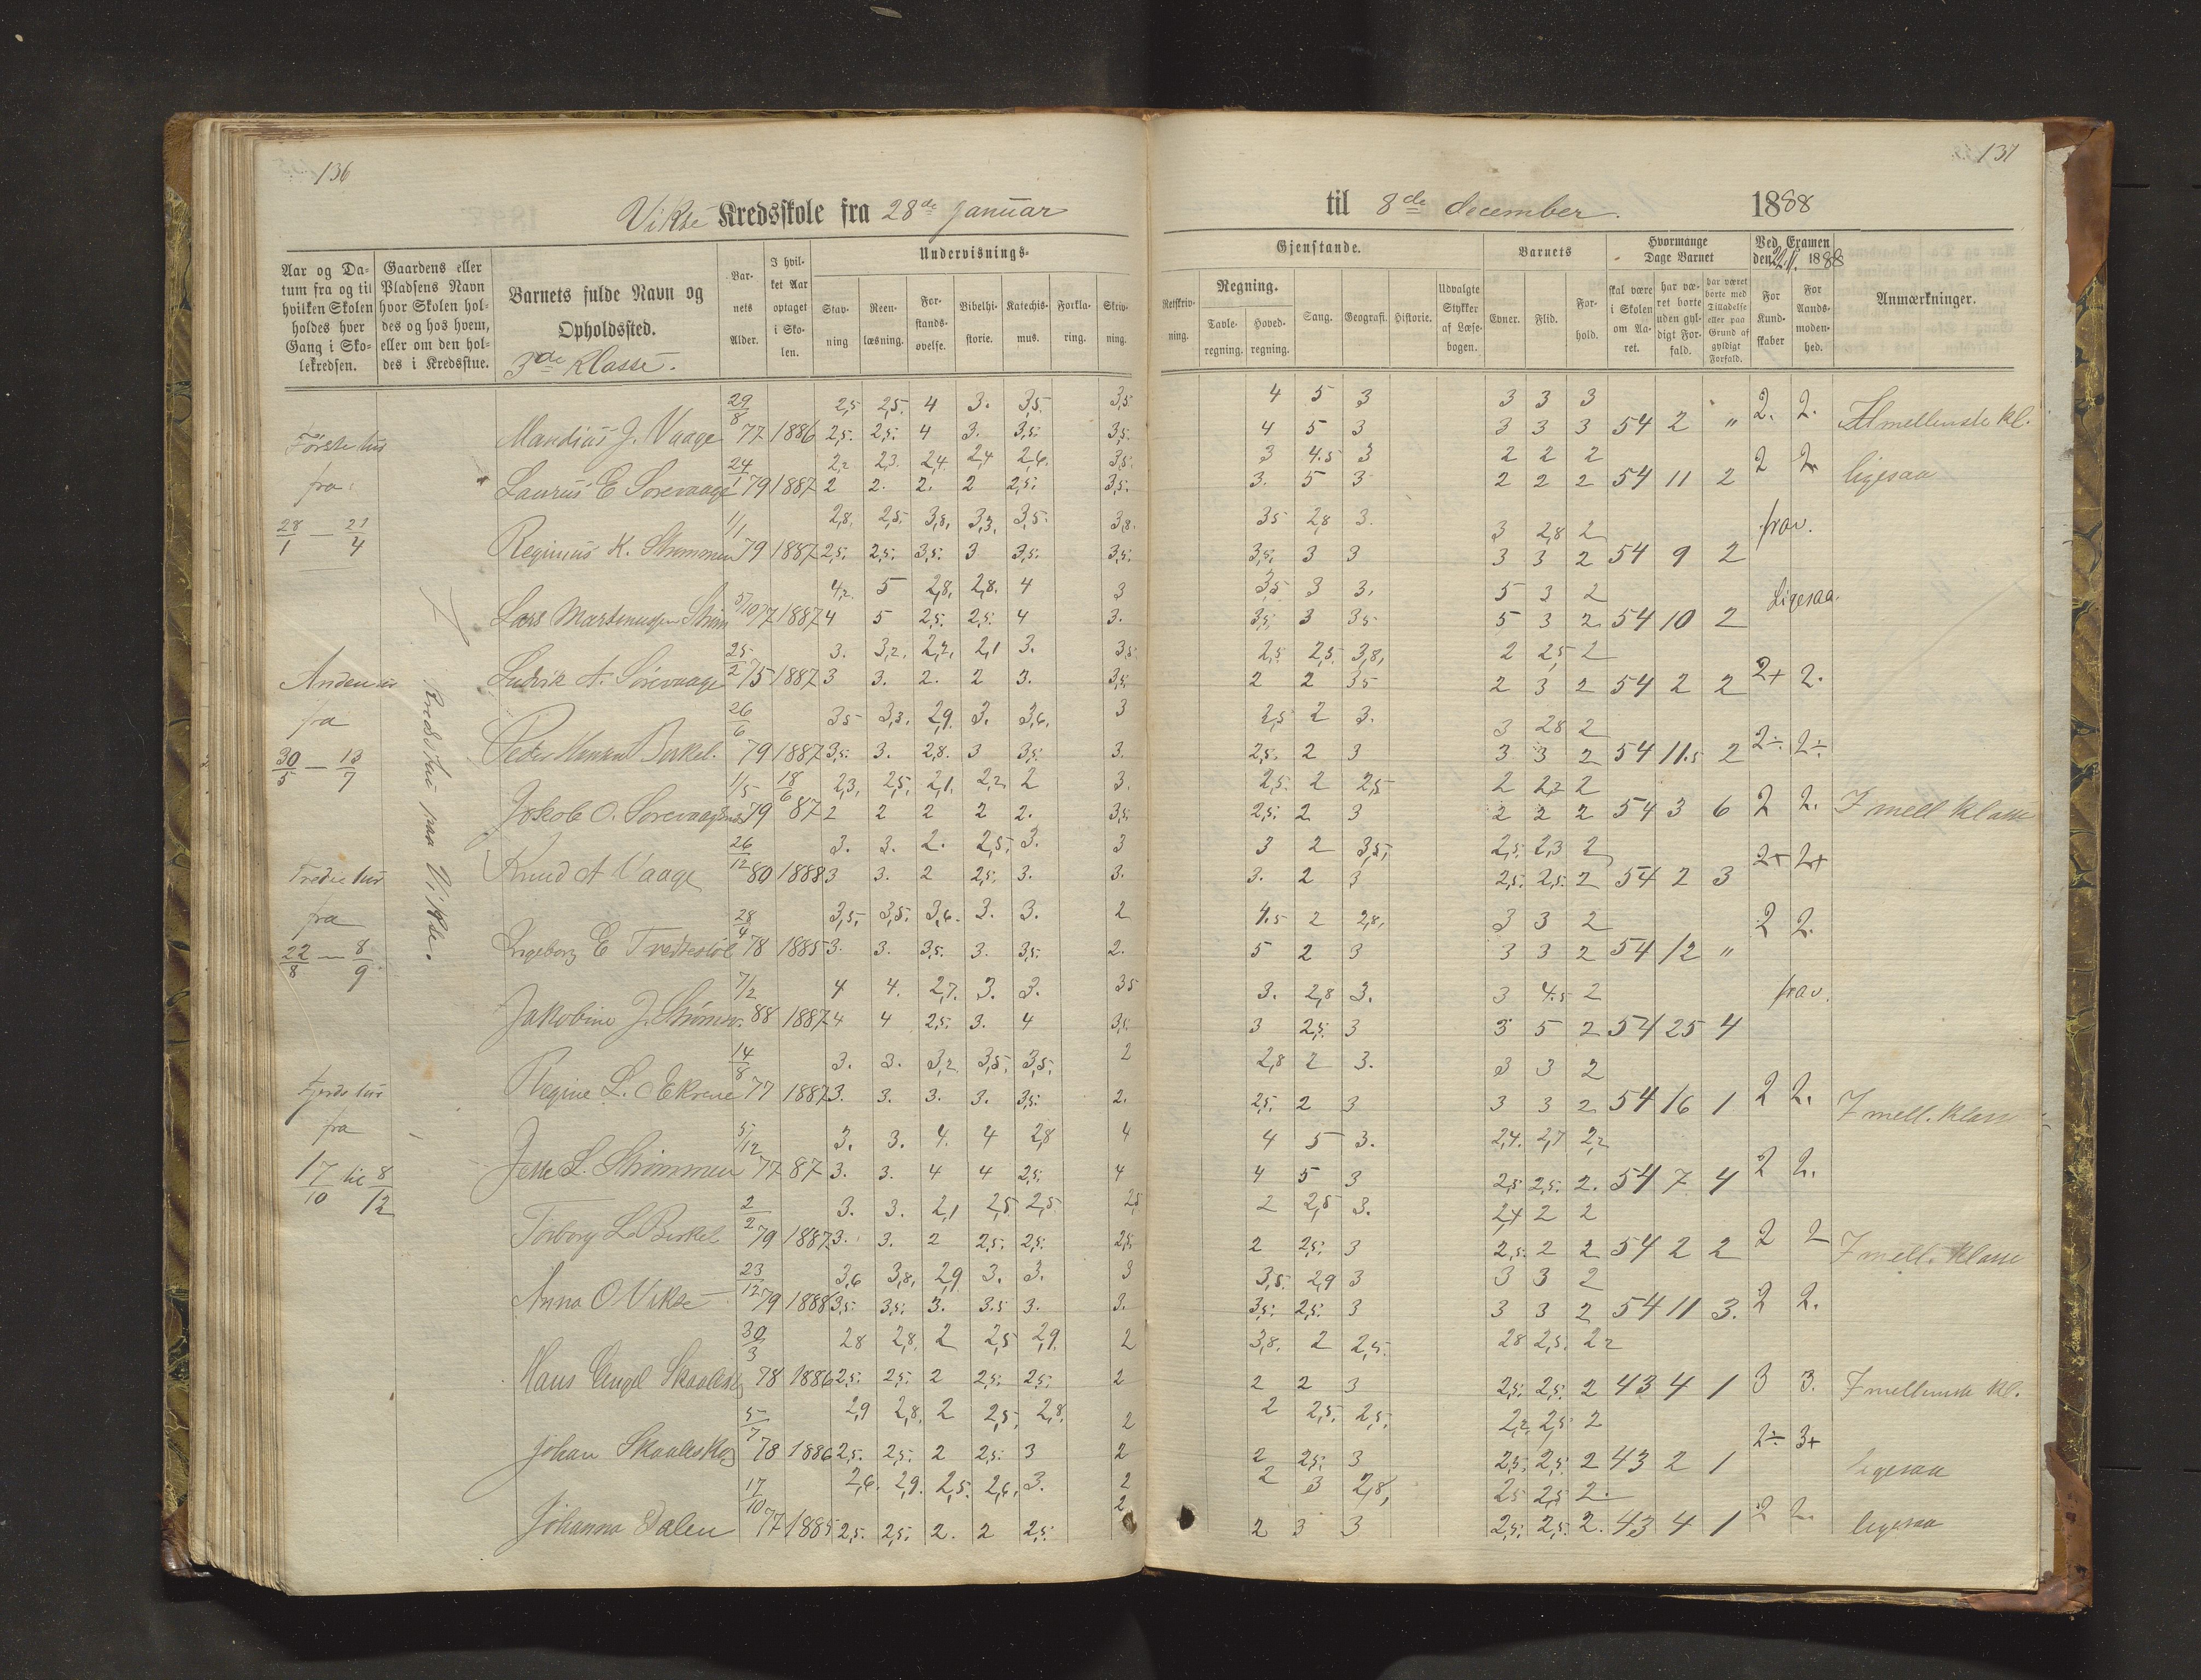 136
Vikse Kredsskole fra 28de januar
Aar og Da-
tum fra og til
hvilken Skolen
holdes hver
Gang i Sko-
lekredsen.
Gaardens eller
Pladsens Navn
hvor Skolen hol-
des og hos hvem,
eller om den hol-
des i Kredsstue.
Barnets fulde Navn og
Opholdssted.
3de Klasse.
Bar-
nets
Alder.
I hvil-
ket Aar
optaget
i Sko-
len.
Undervisnings-
Stav-
ning
Reen-
læsning.
For-
stands-
øvelse.
Bibelhi-
storie.
Katechis-
mus.
Forkla-
ring.
Skriv-
ning.
Første tur
fra
28/1 — 21/4
Anden tur
fra
30/5 — 13/7
Tredie tur
fra
22/8 — 8/9
Fjerde tur
fra
17/10 til 8/12
Kredsstue paa Vikse.
29/8 2,5 2,5. 4 3. 3,5. 3,5
Mandius J. Vaage 77 1886 2,5. 2,5. 4 3. 3,5. 3,5.
24/1 2,2 2,3. 2,4. 2,4 2,6. 3,5.
Laurus E Sørevaage 79 1887 2 2. 2. 2 2,5. 3,5.
1/1 2,8. 2,5. 3,8. 3,3. 3,5. 3,8.
Reginius K. Strømmen 79 1887 2,5. 2,5. 3,5. 3 3,5. 3,5.
5/10 4,2. 5 2,8. 2,8. 4 3
Lars Martinussen Strøm 77 1887 4 5 2,5. 2,5. 4 3.
25/2 3. 3,2. 2,2. 2,1 3. 3,5.
Ludvik A. Sørevaage 75 1887 3 3. 2. 2 3. 3,5.
26/6 3,5 3,3. 2,9. 3. 3,6. 3
Peder Hansen Birkel. 79 1887 3,5. 3. 2,8. 3 3,5. 3.
1/5 18/6 2,3. 2,5. 2,1. 2,2. 2 3.
Jokob O. Sørevaagsnes 79 87 2 2 2 2 2. 3,5.
26/12 3. 3. 2. 2,5. 3. 3
Knud A Vaage 80 1888 3 3. 2 2,5. 3. 3.
28/4 3,5. 3,5. 3,6. 3. 3. 2
Ingeborg E Tveitestøl 78 1885 3. 3. 3,5. 3. 3,5. 2.
7/2 4 4. 2,7. 3. 3. 3,5
Jakobine J. Strømsv. 88 1887 4 4 2,5. 3. 4 3,5.
14/8 3. 3. 3,2. 3,5. 3,5. 2
Regine L. Ekrene 77 1887 3. 3. 3. 3. 3,5. 2.
5/12 3. 3. 4. 4 2,8 4
Jette L. Strømmen 77 87 3. 3. 4 4 2,5. 4
2/2 3. 3. 2,1 2,5 2,5. 2,5
Torborg L Birkel 79 1887 3. 3. 2 2,5. 2,5. 2,5.
23/12 3,6 3,8. 2,9 3. 3. 3
Anna O Vikse 79 1888 3,5. 3,5. 3. 3.5 3. 3.
30/3 2,8 2,8. 2 2,5 2,9. 2
Hans Engel Skaaleskog 78 1886 2,5. 2,5. 2 2,5. 2,5. 2
5/7 2,9 2,8. 2 2,5. 2,8. 2
Johan Skaaleskog 78 1886 2,5. 2,5. 2 2,5. 3 2
17/10 2,6. 2,9. 2,5. 2,6. 3. 2
Johanna Dalen 77 1885 2,5. 2,5. 2. 2 2,5. 2
137
til 8de december. 1888
Gjenstande.
Retskriv-
ning.
Regning.
Tavle-
regning.
Hoved-
regning.
Sang.
Geografi.
Historie.
Udvalgte
Stykker
af Læse-
bogen.
Barnets
Evner.
Flid.
For-
hold.
Hvormange
Dage Barnet
skal være
i Skolen
om Aa-
ret.
har væ-
ret borte
uden gyl-
digt For-
fald.
har været
borte med
Tilladelse
eller paa
Grund af
gyldigt
Forfald.
Ved Examen
den 22/11. 1888
For
Kund-
skaber
For
Aands-
moden-
hed.
Anmærkninger.
4 5 3 3 3 3
4 5 3 3 3 3 54 2 " 2. 2. mellemste kl.
3 4.5 3 2 2 2
3. 5 3 2 2 2 54 11 2 2 2. ligesaa
3,5 2,8 3. 3 2,8 2 frav.
3,5. 3 3 3 3 2 54 9 2
3,5 3 3. 5 3 2 Ligesaa.
3,5. 3 3,5 5 3 2. 54 10 2
2,5 2,5. 3,8. 2 2,5 2
2 2 3,5 2 3 2 54 2 2 2+ 2.
2,5 2 3. 3 2,8 2
2,5. 2 3 3 3 2 54 11.5 2 2÷ 2÷
2,5. 2 2,5 2 2,2 2
2,5. 2 3 2 2 2 54 3 6 2 2. I mell klasse
3 2 3,5. 2,5. 2,3 2
3. 2 3 2,5. 2,5. 2 54 2 3 2+ 2+
4.5 2 2,8. 3 3 2
5 2 3 3 3 2 54 12 " 2 2.
3. 2,8 3. 3 4.5 2 frav.
3 2,5. 3 3 5 2 54 25 4
2,8 2 3. 3 3 2
2,5. 2 3 3 3 2 54 16 1 2 2. I mell. klasse
4 5 3. 2,4. 2,7 2,2
4 5 3 2,5. 2,5. 2. 54 7 4 2 2.
2 2,5 3. 2,4 2 2
2 2,5. 3 2,5. 2 2 54 2 2 2 2 I mell. klasse
3,5. 2,9 3 3 3 2
3,5. 2,5. 3 3 3 2 54 11 3. 2 2.
3,8. 2 2,5. 2,8 2,5. 2,2
2 2 3 2,5. 2,5. 2 43 4 1 3 3. I mellemste kl.
2 2,5. 2,5. 2,2. 2,5 2
2 2,5. 3 2,5. 2,5. 2 43 2 1 2÷ 3+ ligesaa
2 3 2,8. 2,5 2,5 2.
2 3 3 2,5. 2,5. 2. 43 4 1 2 2. ligesaa